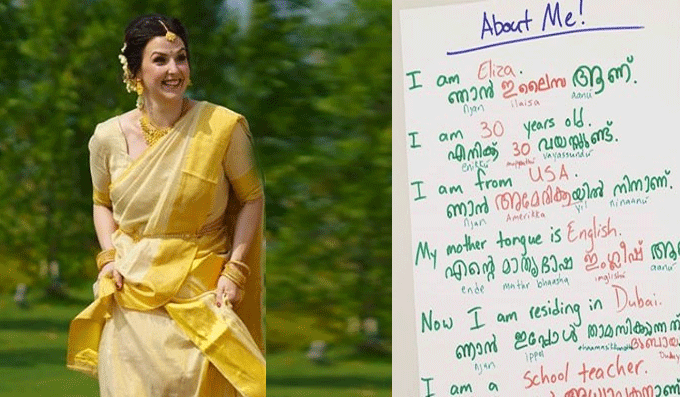 About Me!
I am Eliza.
ഞാൻ ഇലൈസ ആണ്.
Njan ilaisa aanu
I am 30 years old.
എനിക്ക് 30 വയസ്സുണ്ട്.
enikku muppathu vayassundu
I am from USA.
ഞാൻ അമേരിക്കയിൽ നിനാണ്.
Njan Amerikka yil ninaanu
My mother tongue is English.
എന്റെ മാതൃഭാഷ ഇംഗ്ലീഷ്
ende mathr bhaasha inglishu aanu
Now I am residing in Dubai.
ഞാൻ ഇപ്പോൾ താമസിക്കുന്നത്
Njan ippol
I am a school teacher.